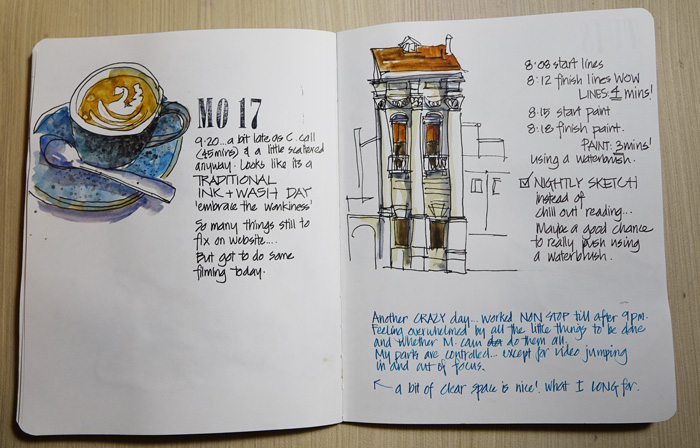 MO 17
9:20...a bit late as C. call
(45mins) & a little scattered
anyway. Looks like its a
TRADITIONAL
INK + WASH DAY
'embrace the wonkiness'
So many things still to
fix on website....
But got to do some
filming today.
8:08 start lines
8:12 finish lines WOW
LINES: 4 mins!
8:15 start paint
8:18 finish paint.
PAINT: 3mins!
using a waterbrush.
☑ NIGHTLY SKETCH
instead of
chill out reading...
Maybe a good chance
to really push using
a waterbrush.
Another CRAZY day... worked NON STOP till after 9pm.
Feeling overwhelmed by all the little things to be done
and whether M. can do them all.
My parts are controlled... except for video jumping
in and out of focus.
← a bit of clear space is nice! What I LONG for.